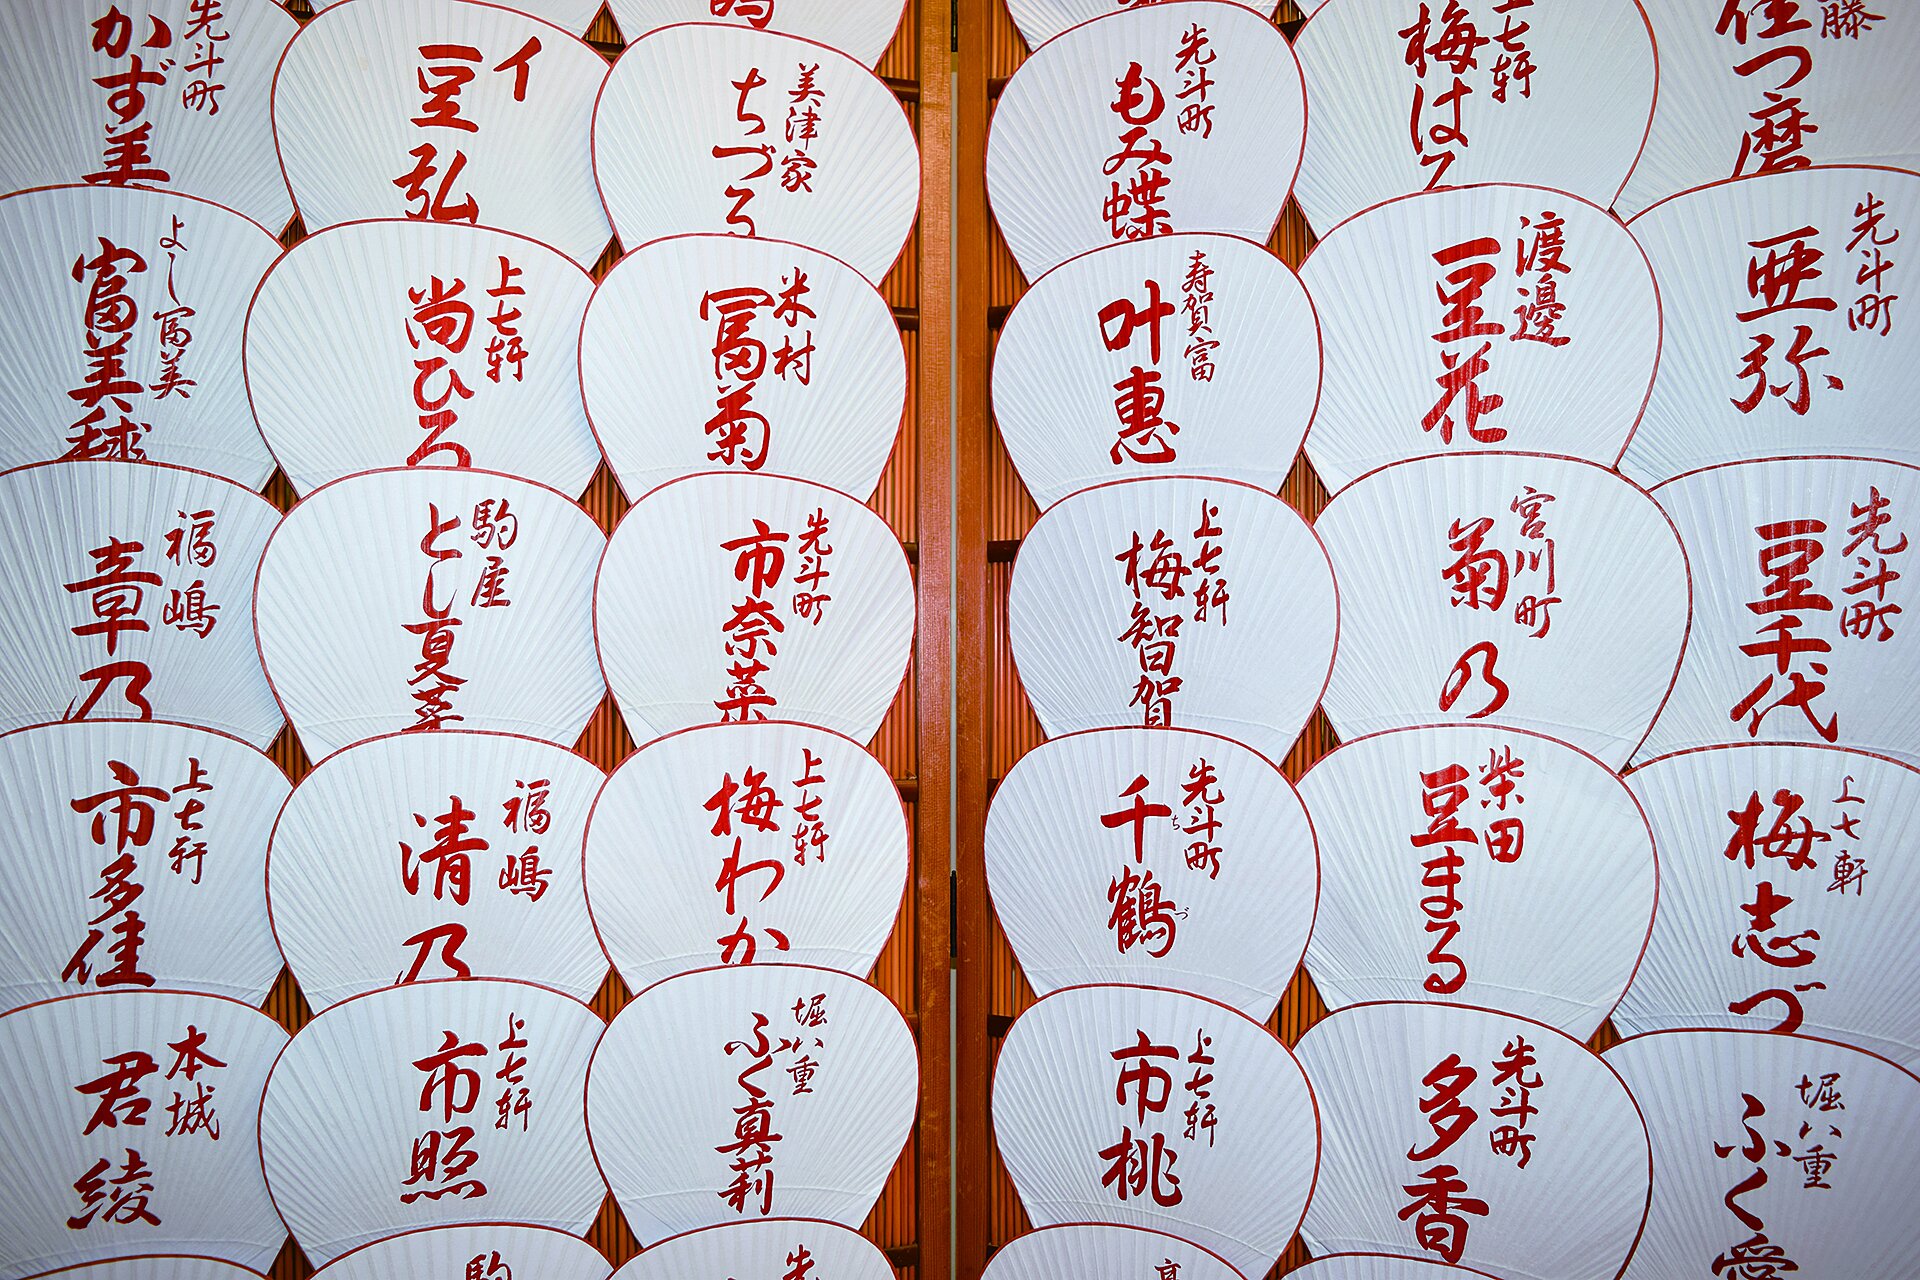 先斗町
かず美
イ
豆弘
美津家
ちづる
先斗町
もみ蝶
上七軒
梅は
佳つ磨
よし冨美
富美毬
上七軒
尚ひろ
米村
冨菊
寿賀富
叶惠
渡邊
豆花
先斗町
亜弥
福嶋
章乃
駒屋
とし夏菜
先斗町
市奈菜
上七軒
梅智賀
宮川町
菊乃
先斗町
豆千代
上七軒
市多佳
福嶋
清乃
上七軒
梅わか
先斗町
千鶴
ちづ
柴田
豆まる
上七軒
梅志づ
本城
君綾
上七軒
市照
堀八重
ふく真莉
上七軒
市桃
先斗町
多香
堀八重
ふく愛
駒
先